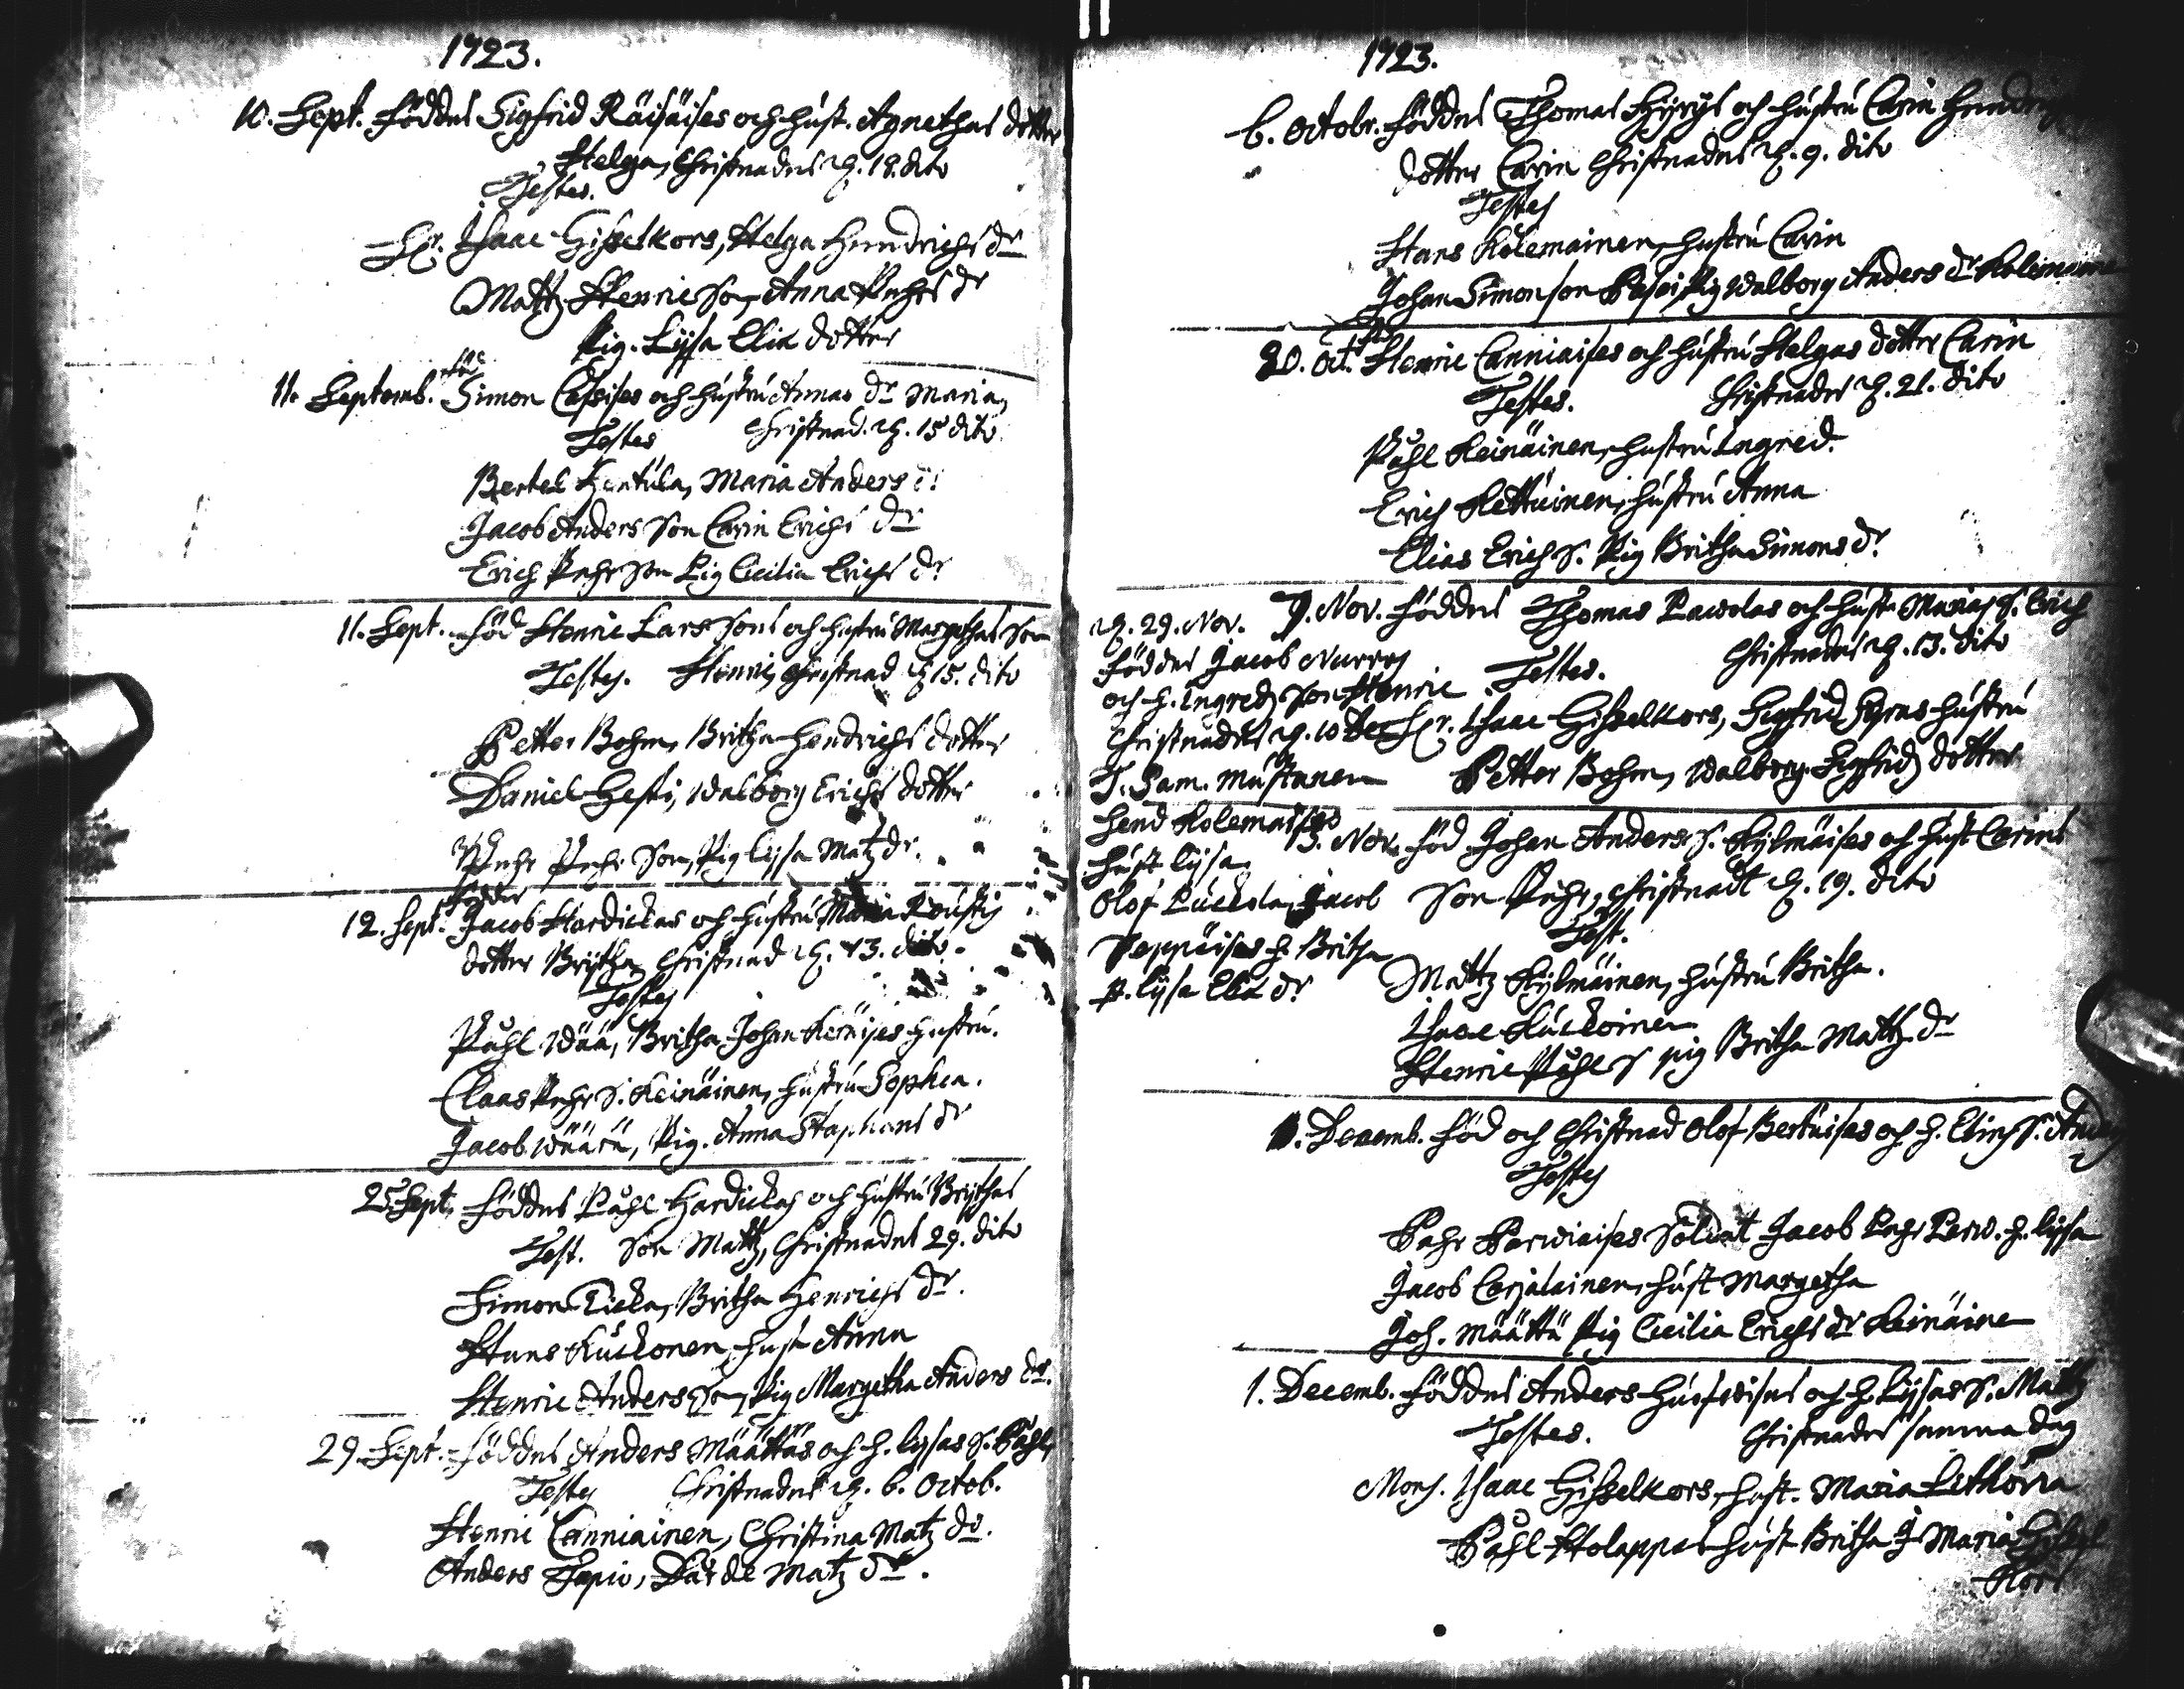 1723.
10. Sept. föddes Sigfrid Räisäises och hust. Agnethas dotter
Helga, Christnades d. 18. dito
Testes.
Hr. Isaac Gisselkors, Helga Hendrichs dr
Mattz Henricson, Anna Pehrs dr
Pig. Lijsa Eliæ dotter
11. Septemb. föd Simon Cassises och hustru Annas dr Maria,
Testes Christnad. d. 15 dito
Bertel Hentula, Maria Anders dr
Jacob Anders Son Carin Erichs dr
Erich Pehr Son Pig Cecilia Erichs dr
11. Sept. föd Henric Lars Sons och hustru Margethas Son
Testes. Henric, Christnad d. 15. dito
Petter Bohm, Britha Hendrichs dotter
Daniel Hesti, Walborg Erichs dotter
Pehr Pehr Son, Pig Lijsa Matz dr.
12. Sept. föddes Jacob Hardickas och hustru Maria
dotter Brijtha, Christnad d. 13. dito
Testes
Påhl Wää, Britha Johan Keinäises hustru.
Claas Pehr S. Keinäinen, hustru Sophia.
Jacob Määtä, Pig. Anna Staphans dr
25 Sept. föddes Påhl Hardickas och hustru Brijthas
Test. Son Mattz, Christnades 29. dito
Simon Ticka, Britha Henrichs dr.
Hans Kuckonen, hust Anna
Henric Anders Son, Pig Margetha Anders dr.
29. Sept. föddes Anders Määttäs och h. Lijsas S. Påhl,
Testes Christnades d. 6. Octob.
Henric Canniainen, Christina Matz dr.
Anders Tapio, Dårde Matz dr.
1723.
6. Octobr. föddes Thomas Hyrys och hustru Carin
dotter Carin Christnades d. 9. dito
Testes
Hans Kolemainen, hustru Carin
Johan Simonson Pig Walborg Anders dr Kolemainen
20. Oct. Henric Canniaises och hustru Helgas dotter Carin
Testes. Christnades d. 21. dito
Påhl Keinäinen, hustru Ingred.
Erich Kettuinen, hustru Anna
Elias Erich S. Pig Britha Simons dr.
9. Nov. föddes Thomas Pawolas och hust. Marias S. Erich
Testes. Christnades d. 13. dito
Hr. Isaac Gisselkors, Sigfrid Hyrus hustru
Petter Bohm, Walborg Sigfrids dotter
d. 29. Nov.
föddes Jacob Nurros
och h. Ingreds Son Henric
Christnades d. 10 Dec
T. Sam. Mustanen
Hend Kolemaises
hust Lijsa
Olof Puckola, Jacob
Seppäises h. Britha
p. Lijsa Eliæ dr
13. Nov. föd Johan Anders S. Kylmäises och hust Carins
Son Pehr, Christnadt d. 19. dito
Test.
Mattz Kylmäinen, hustru Britha.
Isaac Kuckoinen
Henric Påhl S pig Britha Mattz dr
1. Decemb. föd och Christnad Olof Bertuises och h. Elins S. Anders
Testes
Pehr Parviaises Soldat Jacob Pehr Parw. h. Lijsa
Jacob Carjalainen, hust Margetha
Joh. Määttä Pig Cecilia Erichs dr Keinäinen
1. Decemb. föddes Anders och h. Lijsas S. Mattz
Testes. Christnades samma dag
Mons. Isaac Gisselkors, hust. Maria Lithovia
Påhl Holappa hust Britha J. Maria Gissel
Kors